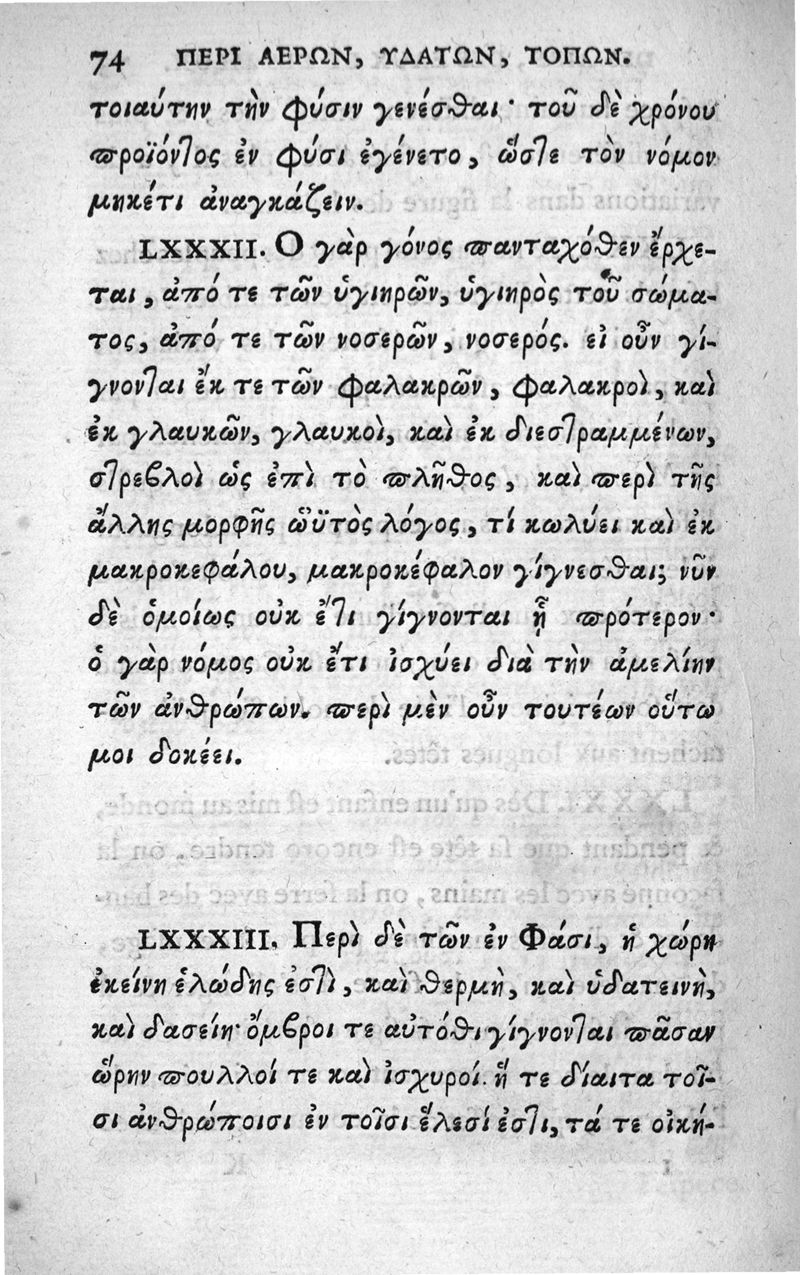 74 ΠΕΡΙ ΑΕΡΩΝ, ΥΔΑΤΩΝ, ΤΟΠΩΝ.
τοιαύτην τὴν φύσιν γενέσθαι· τοῦ δὲ χρόνου
προϊόντος ἐν φύσι ἐγένετο, ὥστε τὸν νόμον
μηκέτι ἀναγκάζειν.
LXXXII. Ο γὰρ γόνος πανταχόθεν ἔρχε-
ται, ἀπό τε τῶν ὑγιηρῶν, ὑγιηρὸς τοῦ σώμα-
τος, ἀπό τε τῶν νοσερῶν, νοσερός. εἰ οὖν γί-
γνονται ἔκ τε τῶν φαλακρῶν, φαλακροὶ, καὶ
ἐκ γλαυκῶν, γλαυκοὶ, καὶ ἐκ διεστραμμένων,
στρεβλοὶ ὡς ἐπὶ τὸ πλῆθος, καὶ περὶ τῆς
ἄλλης μορφῆς ὡϋτὸς λόγος, τί κωλύει καὶ ἐκ
μακροκεφάλου, μακροκέφαλον γίγνεσθαι; νῦν
δὲ ὁμοίως οὐκ ἔτι γίγνονται ᾗ πρότερον·
ὁ γὰρ νόμος οὐκ ἔτι ἰσχύει διὰ τὴν ἀμελίην
τῶν ἀνθρώπων. περὶ μὲν οὖν τουτέων οὕτω
μοι δοκέει.
LXXXIII. Περὶ δὲ τῶν ἐν Φάσι, ἡ χώρη
ἐκείνη ἑλώδης ἐστὶ, καὶ θερμὴ, καὶ ὑδατεινὴ,
καὶ δασείη· ὄμβροι τε αὐτόθι γίγνονται πᾶσαν
ὥρην πουλλοί τε καὶ ἰσχυροί. ἥ τε δίαιτα τοῖ-
σι ἀνθρώποισι ἐν τοῖσι ἕλεσί ἐστι, τά τε οἰκή-